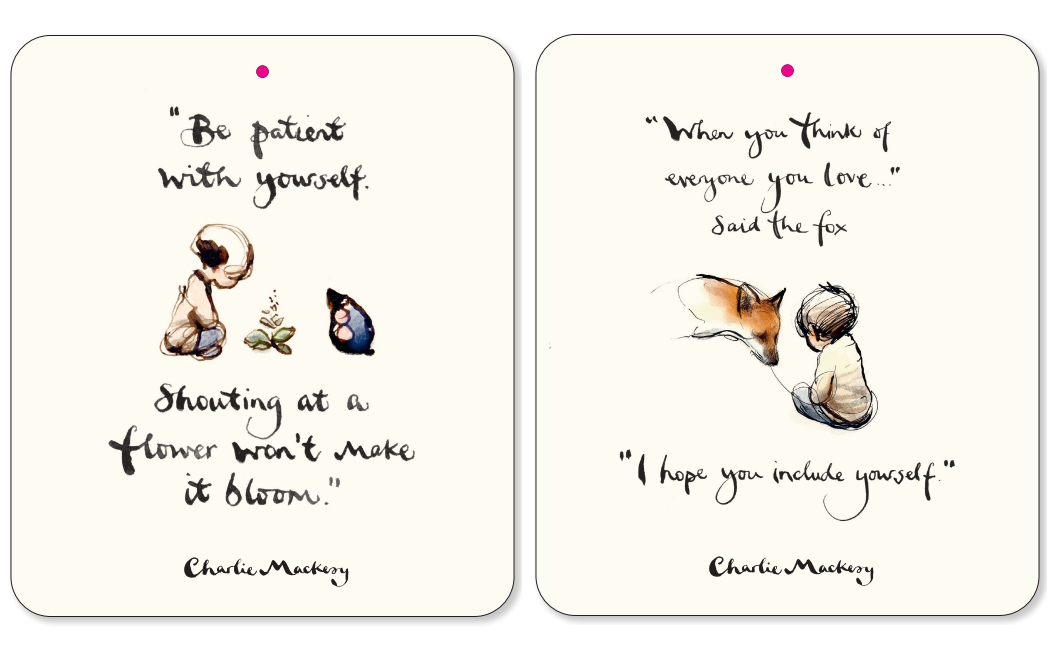 "Be patient
with yourself.
Shouting at a
flower won't make
it bloom."
Charlie Mackesy
"When you think of
everyone you love..."
Said the fox
"I hope you include yourself."
Charlie Mackesy